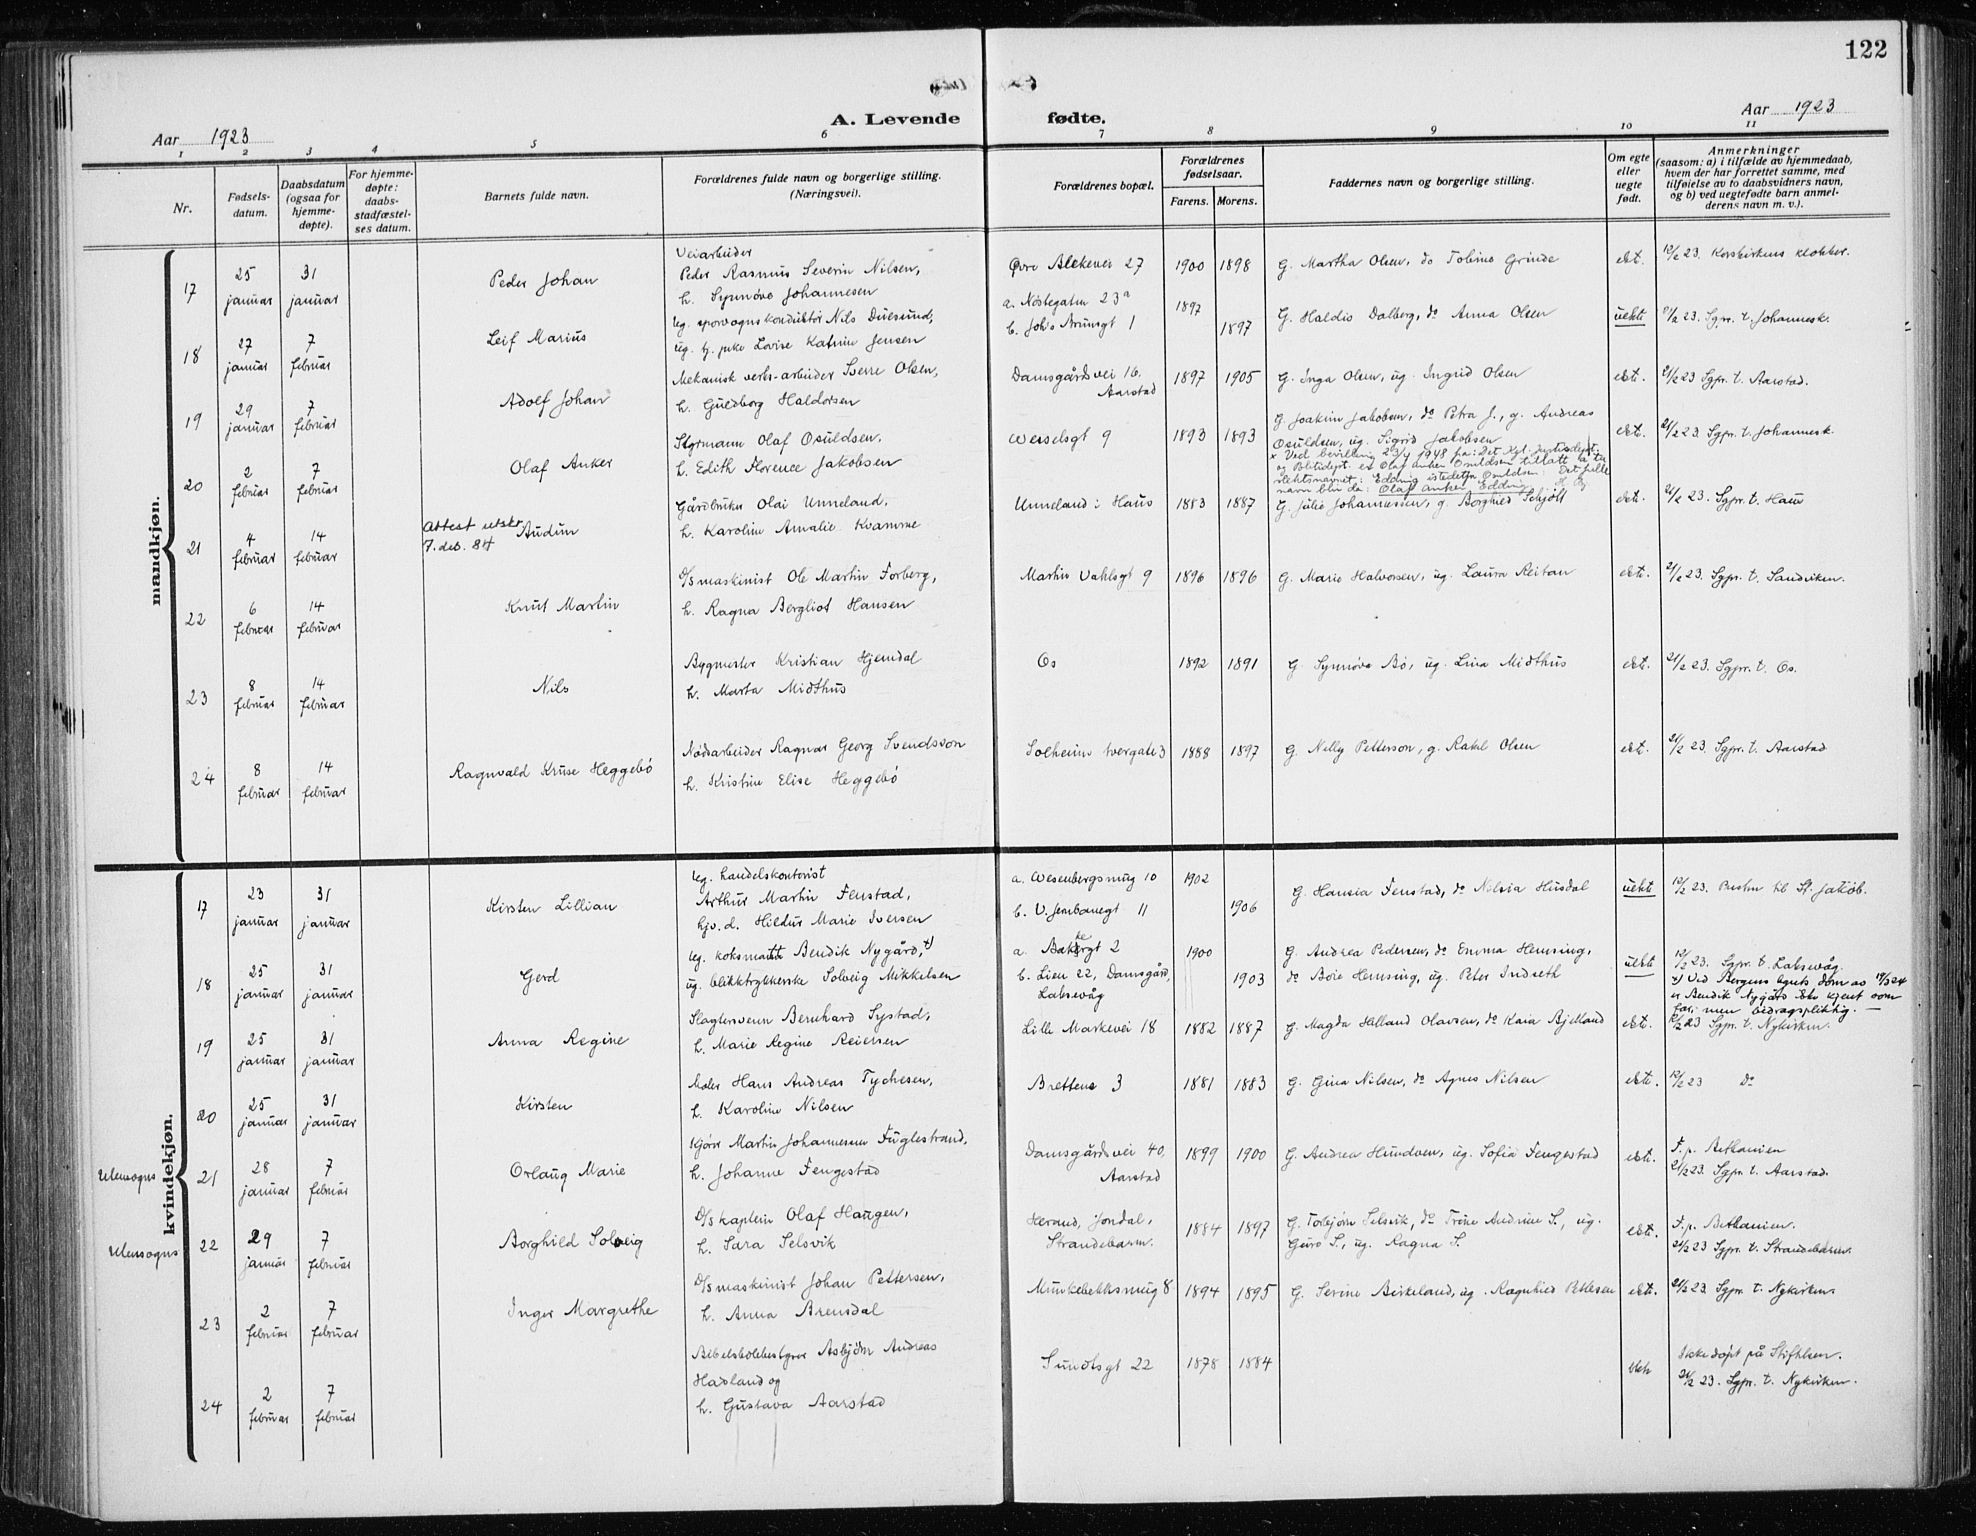 122
Aar 1923
A. Levende fødte.
Aar 1923
1 2 3 4 5 6 7 8 9 10 11
Nr.
Fødsels-
datum.
Daabsdatum
(ogsaa for
hjemme-
døpte).
For hjemme-
døpte:
daabs-
stadfæstel-
ses datum.
Barnets fulde navn.
Forældrenes fulde navn og borgerlige stilling.
(Næringsvei).
Forældrenes bopæl.
Forældrenes
fødselsaar.
Farens. Morens.
Faddernes navn og borgerlige stilling.
Om egte
eller
uegte
født.
Anmerkninger
(saasom: a) i tilfælde av hjemmedaab,
hvem der har forrettet samme, med
tilføielse av to daabsvidners navn,
og b) ved uegtefødte barn anmel-
derens navn m. v.).
mandkjøn.
17 25 januar 31 januar Peder Johan
Veiarbeider
Peder Rasmus Severin Nilsen,
h. Synnøve Johannesen
Øvre Blekevei 27 1900 1898 G. Martha Olsen, do Tobine Grinde ekt. 12/2 23. Korskirkens klokker.
18 27 januar 7 februar Leif Marius
Ug. sporvognskonduktør Nils Duesund,
ug. tj. pike Lovise Katrine Jensen
a. Nøstegaten 23a 1897
b. Joh's Brunsgt 1 1897
G. Haldis Dalberg, do Anna Olsen uekte 21/2 23. Sgpr. t. Johannesk.
19 29 januar 7 februar Adolf Johan
Mekanisk verks-arbeider Sverre Olsen,
h. Guldborg Haldorsen
Damsgårdsvei 16.
Aarstad
1897 1905 G. Inga Olsen, ug. Ingrid Olsen ekt. 21/2 23 Sgpr. t. Aarstad.
20 2 februar 7 februar Olaf Anker
Styrmann Olaf Osuldsen,
h. Edith Florence Jakobsen
Wesselsgt 9 1893 1893
G. Joakim Jakobsen, do Petra J., g. Andreas
Osuldsen, ug. Sigrid Jakobsen
x Ved bevilling 23/4 1948 fra: Det Kgl. Justisdept.
og Politidept. er Olaf Anker Osuldsen tillatt å ta
slektsnavnet: Edding istedetfor Osuldsen. Det fulle
navn blir da: Olaf Anker Edding
ekt. 21/2 23 Sgpr. t. Johannesk.
21 4 februar 14 februar
Attest utskr.
7. des. 84
Audun
Gårdbruker Olai Unneland,
h. Karoline Amalie Kvamme
Unneland i Haus 1883 1887 G. Julie Johannessen, g. Borghild Schjøtt ekt. 21/2 23. Sgpr. t. Haus
22 6 februar 14 februar Knut Martin
D/s maskinist Ole Martin Forberg,
h. Ragna Bergliot Hansen
Martin Vahlsgt 9 1896 1896 G. Marie Halvorsen, ug. Laura Reitan ekt. 21/2 23. Sgpr. t. Sandviken.
23 8 februar 14 februar Nils
Bygmester Kristian Hjemdal
h. Marta Midthus
Os 1892 1891 G. Synnøve Bø, ug. Lina Midthus ekt. 21/2 23. Sgpr. t. Os.
24 8 februar 14 februar Ragnvald Kruse Heggebö
Nødsarbeider Ragnar Georg Svendsson
h. Kristine Elise Heggebö
Solheims tvergate 3 1888 1897 G. Nelly Petterson, g. Rakel Olsen ekt. 21/2 23. Sgpr. t. Aarstad
kvindekjøn.
17 23 januar 31 januar Kirsten Lillian
Ug. handelskontorist
Arthur Martin Fenstad,
hjv. d. Hildur Marie Iversen
a. Wesenbergsmug 10 1902
b. V. Jernbanegt 11 1906
G. Hansia Fenstad, do Nilsia Husdal uekte 12/2 23. Resten til St. Jakob.
18 25 januar 31 januar Gerd
Ug. koksmatt Bendik Nygård, x)
ug. blikktrykkerske Solveig Mikkelsen
a. Bakkegt 2 1900
b. Lien 22, Damsgård, 1903
Laksevåg
G. Andrea Pedersen, do Emma Hemsing,
do Böie Hemsing, ug. Peter Indseth
uekte 12/2 23. Sgpr. t. Laksevåg.
x) Ved Bergens byrets dom av 19/3 24
er Bendik Nygård ikke kjent som
far, men bidragspliktig. —
19 25 januar 31 januar Anna Regine
Slagtersvenn Bernhard Systad,
h. Marie Regine Reiersen
Lille Markevei 18 1882 1887 G. Magda Helland Olavsen, do Kaia Bjelland ekt. 12/2 23 Sgpr. t. Nykirken.
20 25 januar 31 januar Kirsten
Maler Hans Andreas Tychesen,
h. Karoline Nilsen
Brettene 3 1881 1883 G. Gina Nilsen, do Agnes Nilsen ekt. 12/2 23 do
Utensogns 21 28 januar 7 februar Orlaug Marie
Kjører Martin Johannessen Fuglestrand,
h. Johanne Fengestad
Damsgårdsvei 40,
Aarstad
1899 1900 G. Andrea Hundven, ug. Sofia Fengestad ekt. F. p. Bethanien
21/2 23. Sgpr. t. Aarstad.
Utensogns 22 29 januar 7 februar Borghild Solveig
D/s kaptein Olaf Haugen,
h. Sara Selsvik
Herand, Jondal,
Strandebarm.
1884 1897 G. Torbjørn Selsvik, do Trine Andrine S., ug.
Guro S., ug. Ragna S.
ekt. F. p. Bethanien.
21/2 23 Sgpr. t. Strandebarm.
23 2 februar 7 februar Inger Margrethe
D/s maskinist Johan Pettersen,
h. Anna Brensdal
Munkebekksmug 8 1894 1895 G. Serine Birkeland, ug. Ragnhild Pettersen ekt. 21/2 23. Sgpr. t. Nykirken.
24 2 februar 7 februar
Asbjørn Andreas
Hadland og
h. Gustava Aarstad
Sundtsgt 22 1878 1884 ekte Ikke døpt på Stiftelsen.
21/2 23. Sgpr. t. Nykirken.